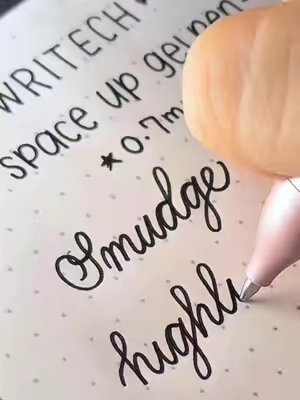 WRITECH
space up gel pen
* 0.7m
Smudge
highli